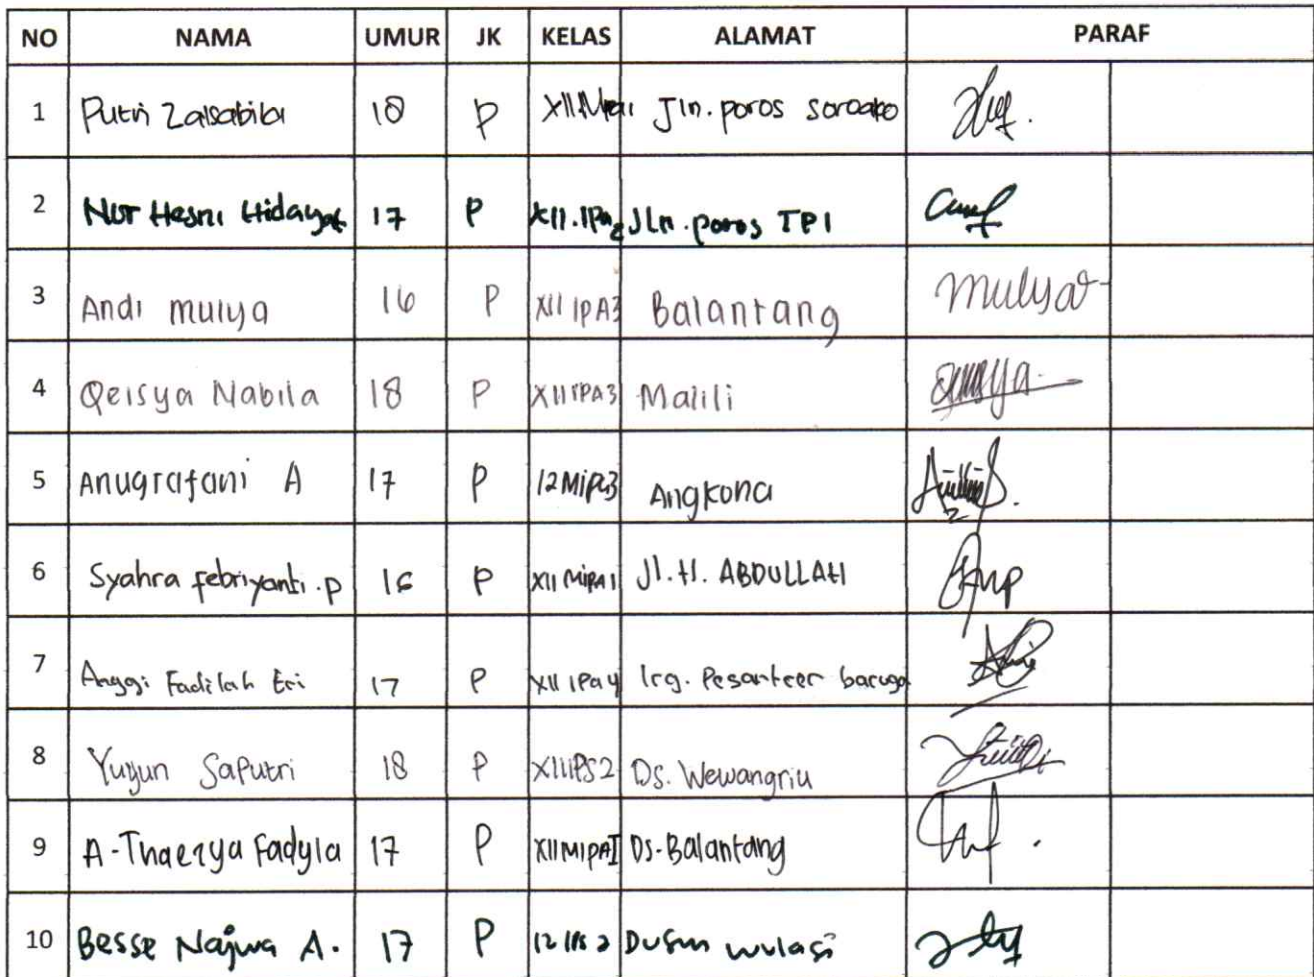 NO NAMA UMUR JK KELAS ALAMAT PARAF
1 Putri Zalsabila 18 P XII.Mipa1 Jln. poros soroako
2 Nur Hesni Hidayat 17 P XII.IPA2 Jln. poros TPI
3 Andi mulya 16 P XII IPA3 Balantang mulya
4 Qeisya Nabila 18 P XII IPA3 Malili
5 Anugrafani A 17 P 12 MiPA3 Angkona
6 Syahra febriyanti .p 16 P XII MIPA1 Jl. H. ABDULLAH
7 Anggi Fadilah Eri 17 P XII IPa 4 lrg. Pesantren baruga
8 Yuyun Saputri 18 P XII IPS2 Ds. Wewangriu
9 A-Thaezya Fadyla 17 P XII MIPA I Ds-Balantang
10 Besse Najwa A. 17 P 12 IPS 2 Dusun wulasi